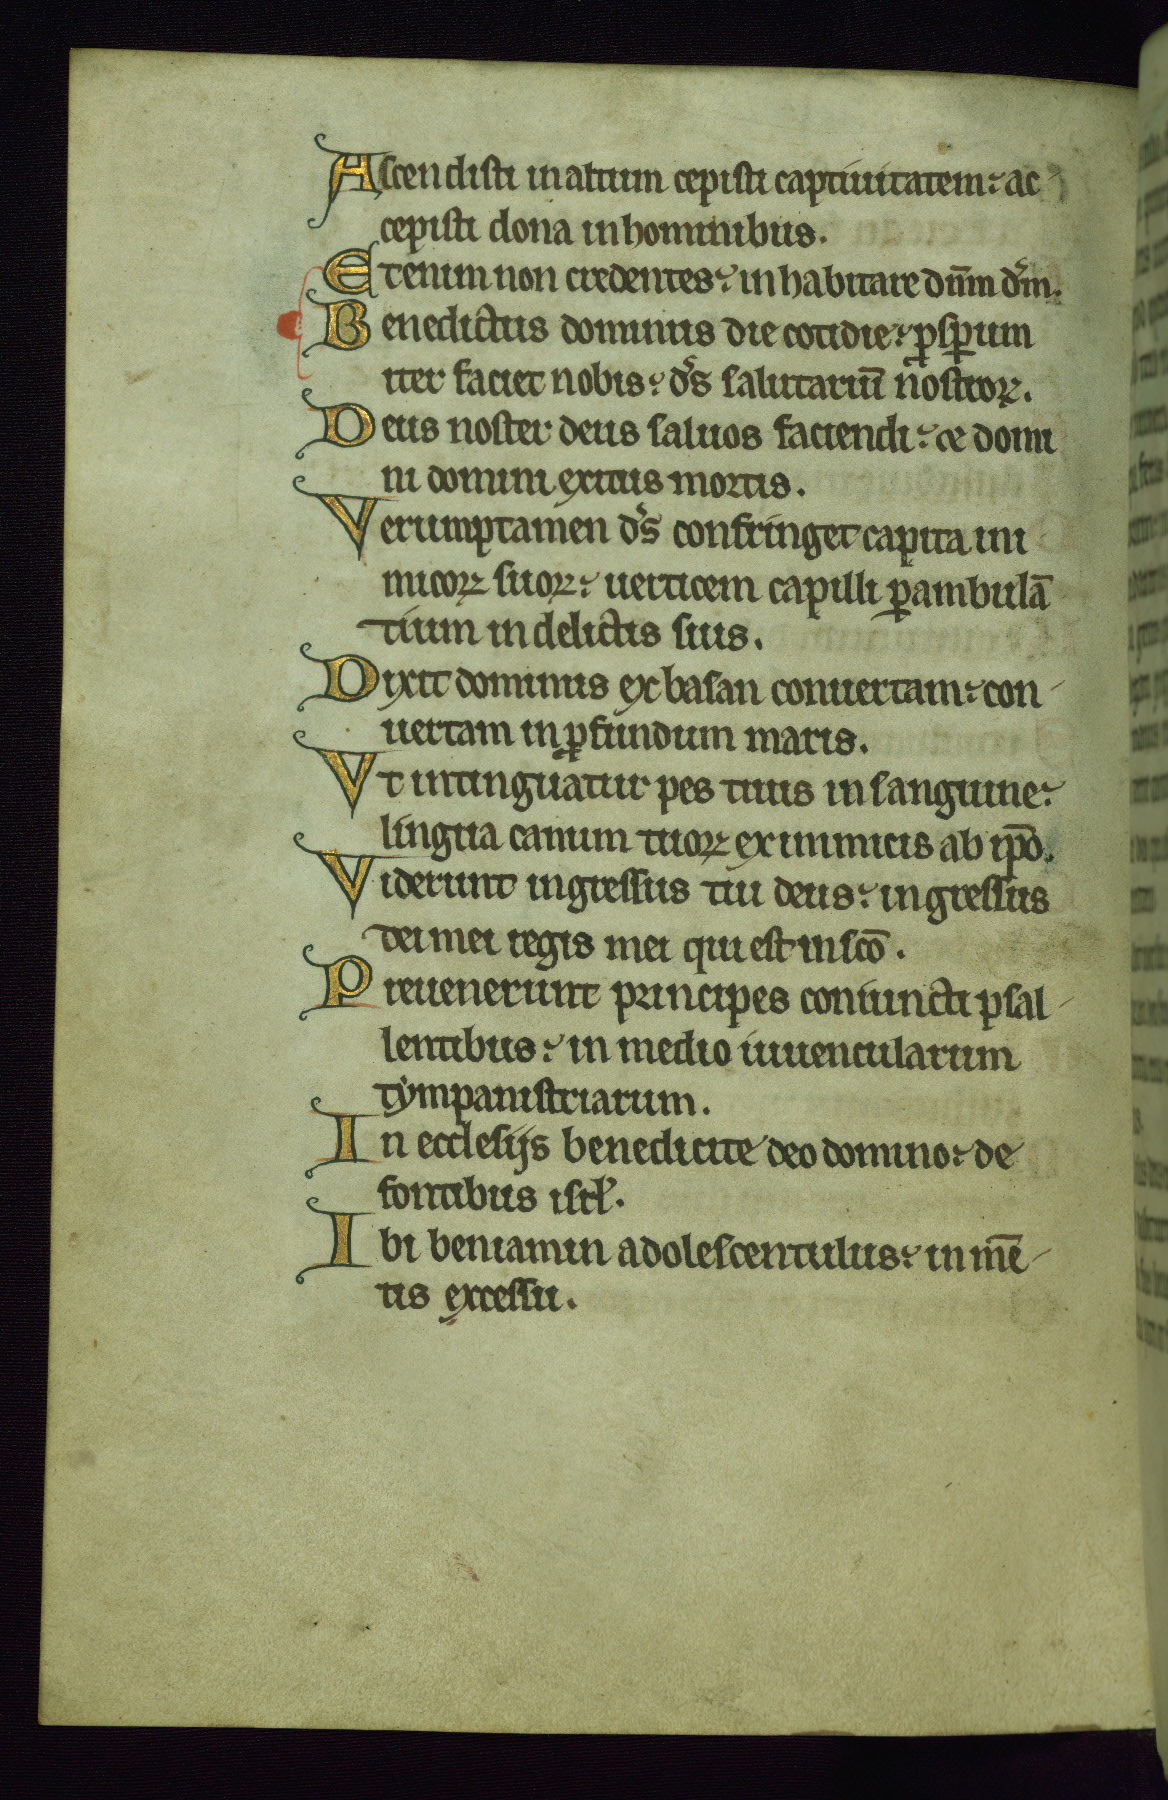 Ascendisti in altum cepisti captiuitatem: ac
cepisti dona in hominibus.
Etenim non credentes: inhabitare dn̄m dm̄.
Benedictus dominus die cotidie: ꝓsꝑum
iter faciet nobis: ds̄ salutariū nostroꝝ.
Deus noster deus saluos faciendi: ⁊ domi
ni domini exitus mortis.
Verumptamen ds̄ confringet capita ini
micoꝝ suoꝝ: uerticem capilli ꝑambulā
tium in delictis suis.
Dixit dominus ex basan conuertam: con
uertam in ꝓfundum maris.
Vt intinguatur pes tuus in sanguine:
lingua canum tuoꝝ ex inimicis ab ip̄o.
Viderunt ingressus tui deus: ingressus
dei mei regis mei qui est in sc̄o.
Preuenerunt principes coniuncti psal
lentibus: in medio iuuencularum
tympanistriarum.
In ecclesijs benedicite deo domino: de
fontibus isrl̄.
Ibi beniamin adolescentulus: in mē
tis excessu.